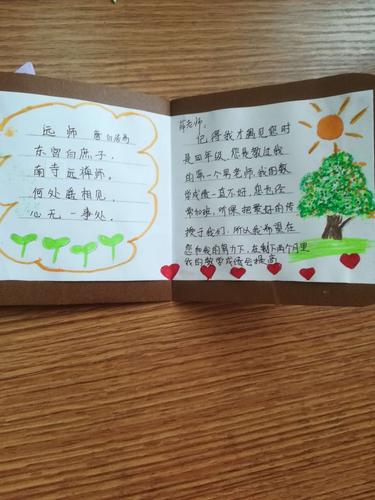 远师 唐白居易
东宫白庶子,
南寺远禅师。
何处遥相见,
心无一事处。
薛老师:
记得我才遇见您时
是四年级,您是教过我
的第一个男老师,我的数
学成绩一直不好,您也经
常加班,听课,把最好的传
授于我们,所以我希望在
您和我的努力下,在剩下两个月里
我的数学成绩会提高